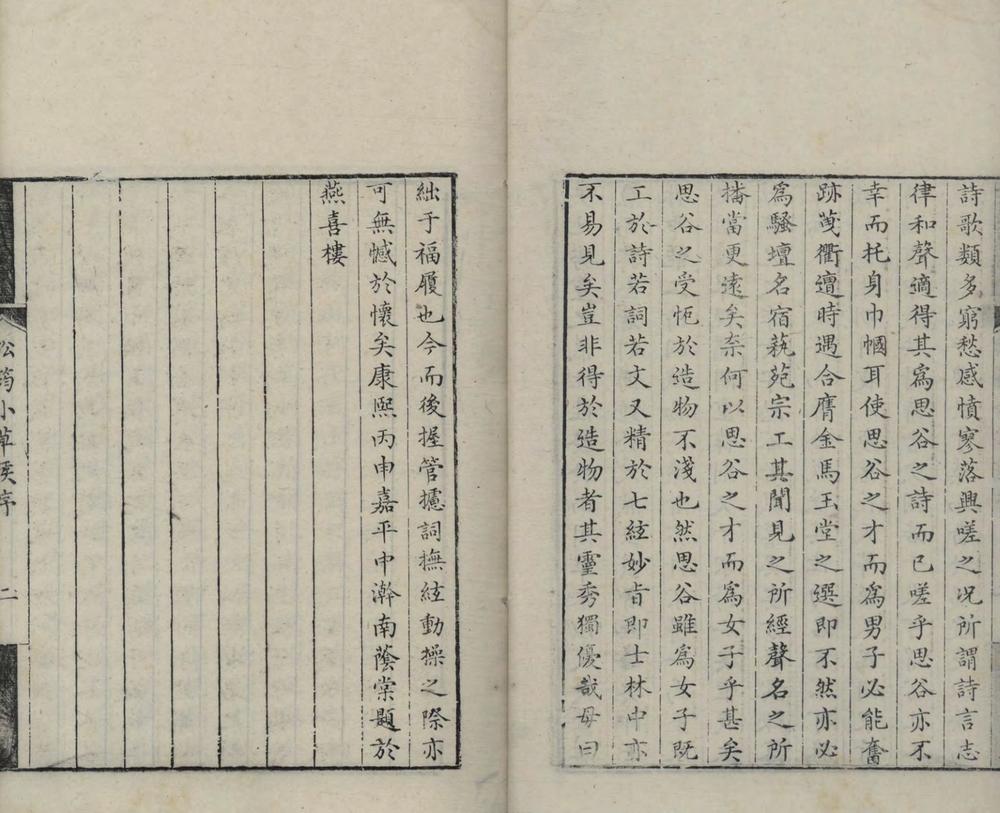 詩歌類多窮愁感憤寥落興嗟之况所謂詩言志
律和聲適得其爲思谷之詩而已嗟乎思谷亦不
幸而托身巾幗耳使思谷之才而爲男子必能奮
跡蔓衢遭時遇合膺金馬玉堂之選即不然亦必
爲騷壇名宿蓺苑宗工其聞見之所經聲名之所
播當更遠矣柰何以思谷之才而爲女子乎甚矣
思谷之受恠於造物不淺也然思谷雖爲女子既
工於詩若詞若文又精於七絃妙旨即士林中亦
不易見矣豈非得於造物者其靈秀獨優哉毋曰
絀于福履也今而後握管攄詞撫絃動操之際亦
可無憾於懷矣康熙丙申嘉平中澣南蔭棠題於
燕喜樓
松筠小草 序
二